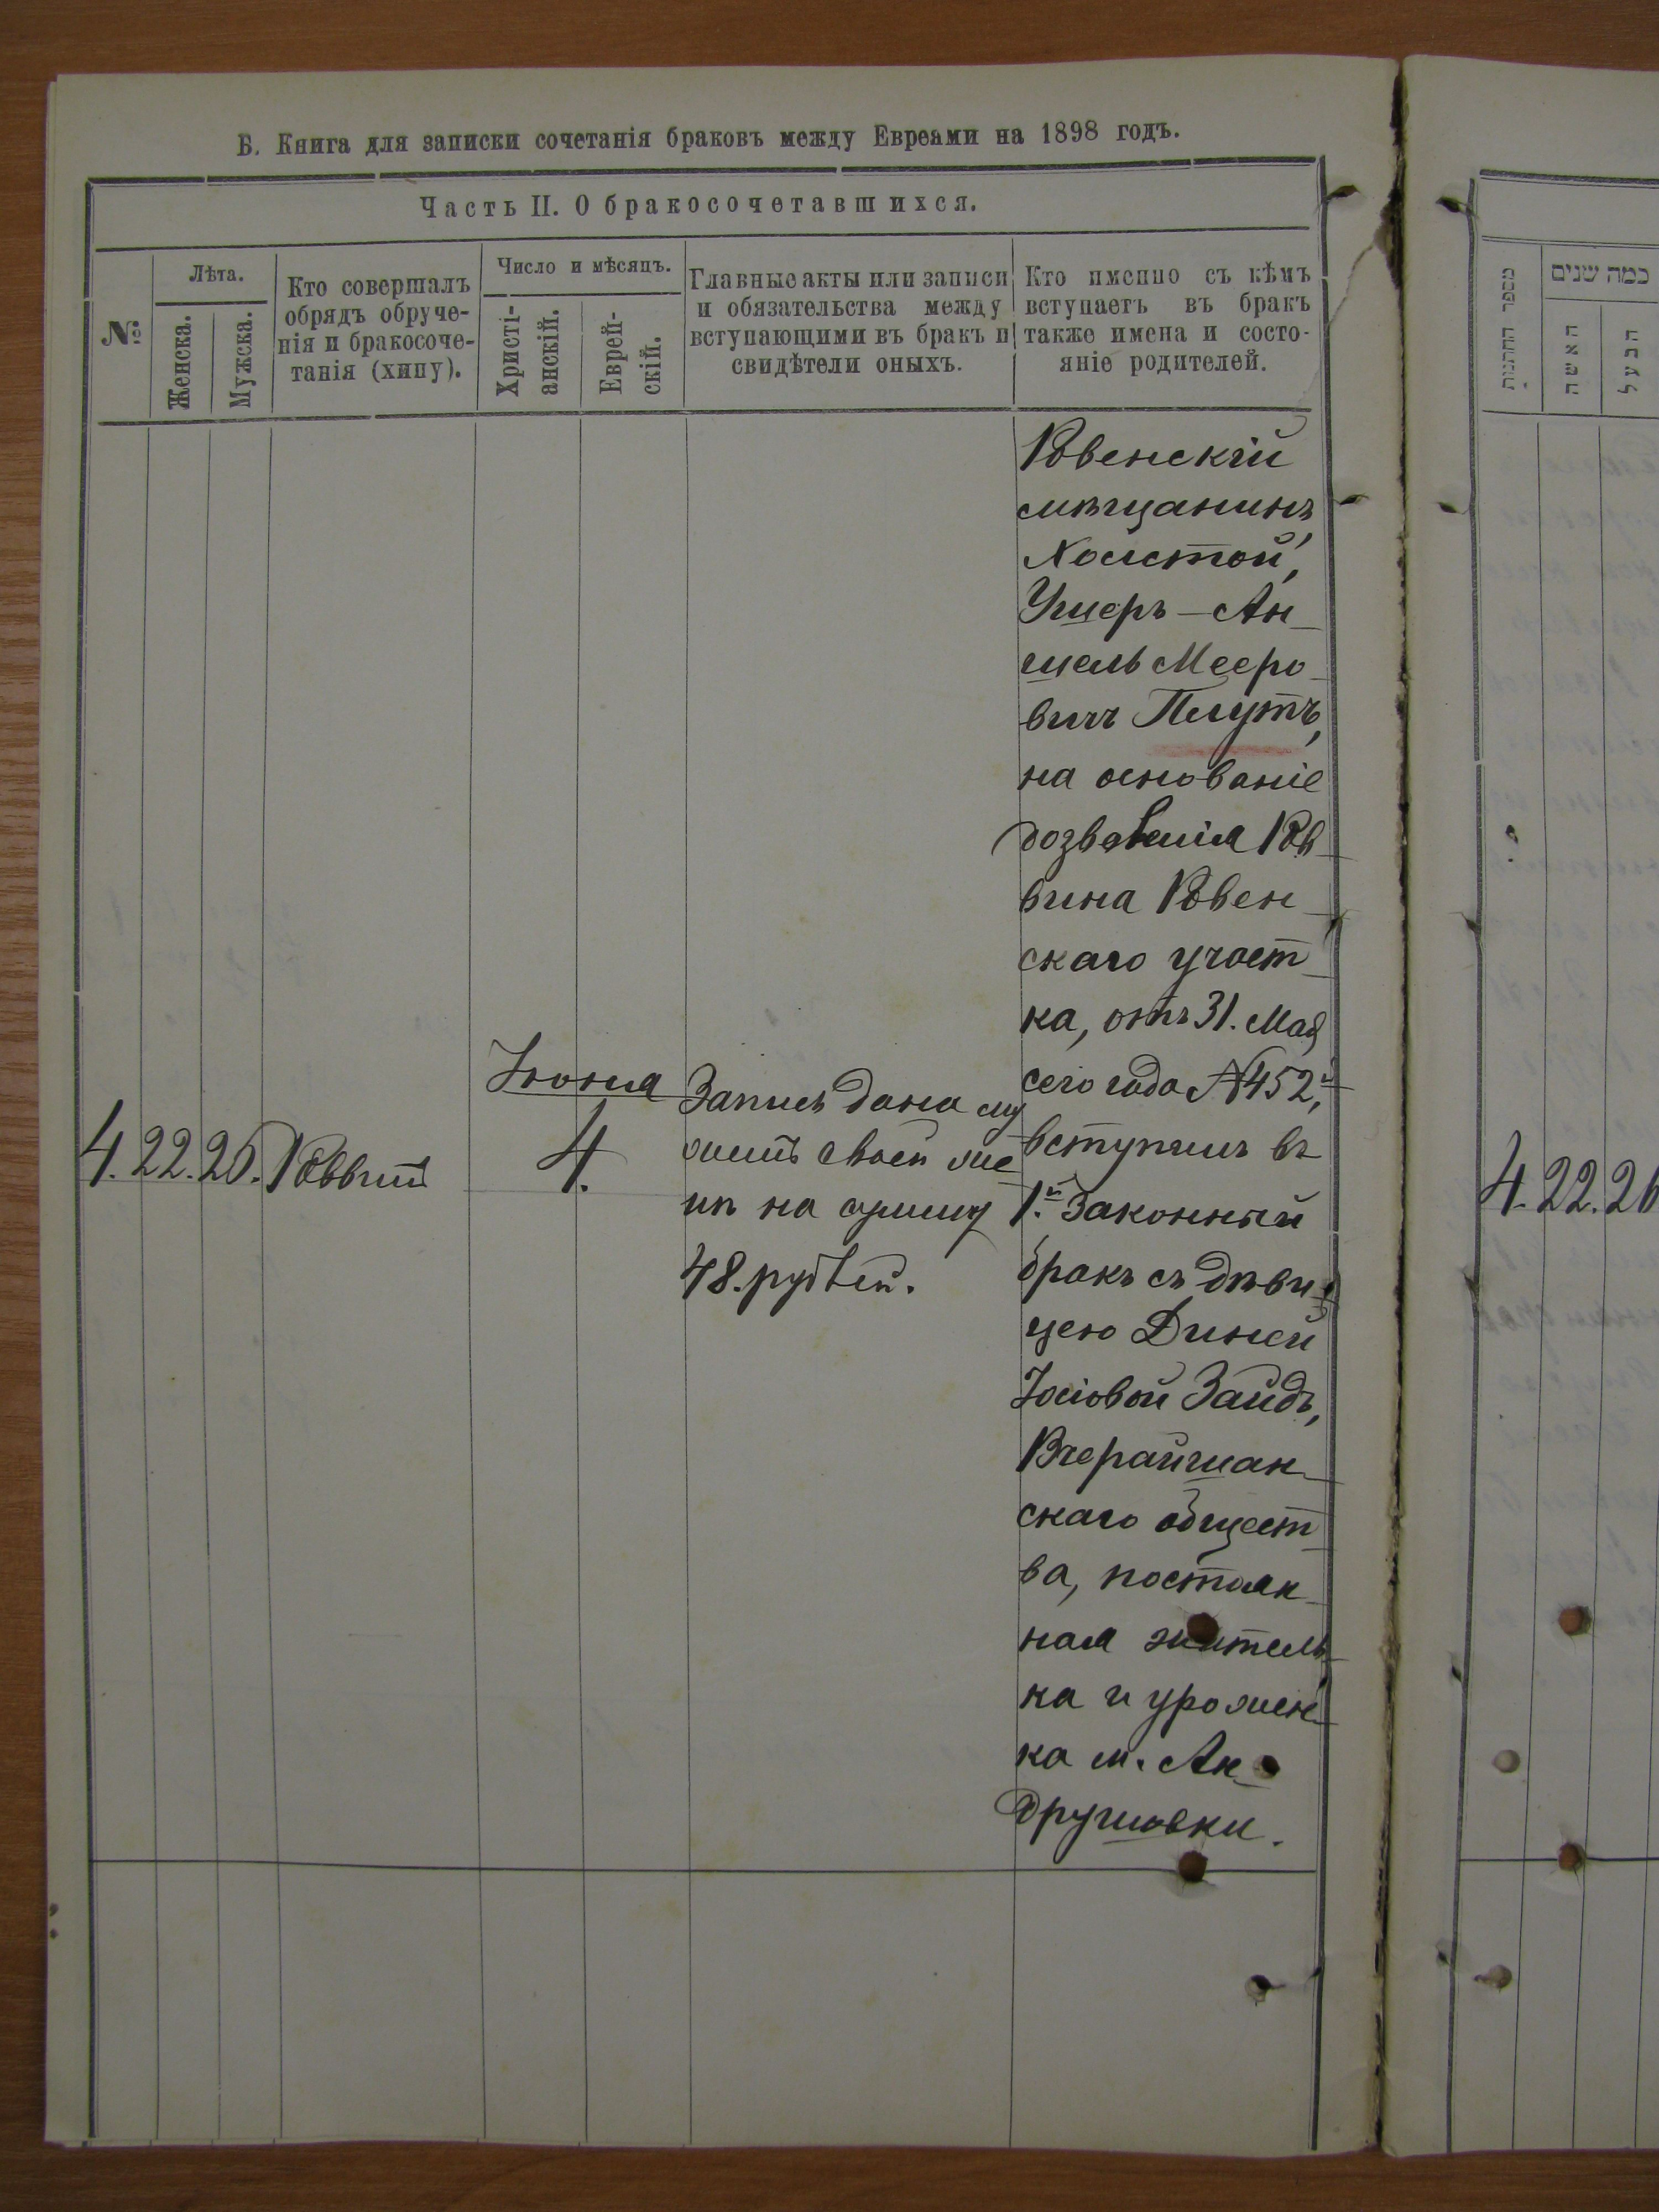 Б. Книга для записки сочетанія браковъ между Евреами на 1898 годъ.
Часть II. О бракосочетавшихся.
№
Лѣта.
Женска.
Мужска.
Кто совершалъ
обрядъ обруче-
нія и бракосоче-
танія (хипу).
Число и мѣсяцъ.
Христі-
анскій.
Еврей-
скій.
Главные акты или записи
и обязательства между
вступающими въ бракъ и
свидѣтели оныхъ.
Кто именно съ кѣмъ
вступаетъ въ бракъ
также имена и состо-
яніе родителей.
4. 22. 26. Раввинъ
Іюня
4.
Запись дана му
жемъ своей же
нѣ на сумму
48. рублей.
Ровенскій
мѣщанинъ,
Холстой,
Ушеръ-Ан-
шель Мееро-
вичъ Плутъ,
на основаніе
дозволенія Рав-
вина Ровен-
скаго участ-
ка, отъ 31. Мая
сего года №452,
вступилъ въ
1.й Законный
бракъ съ дѣви-
цею Диней
Іосіовой Зайдъ,
Вчерайшан-
скаго общест-
ва, постоян-
ная житель-
ка и урожен-
ка м. Ан-
друшовки.
מספר החתונות
כמה שנים
האשה
הבעל
4. 22. 26